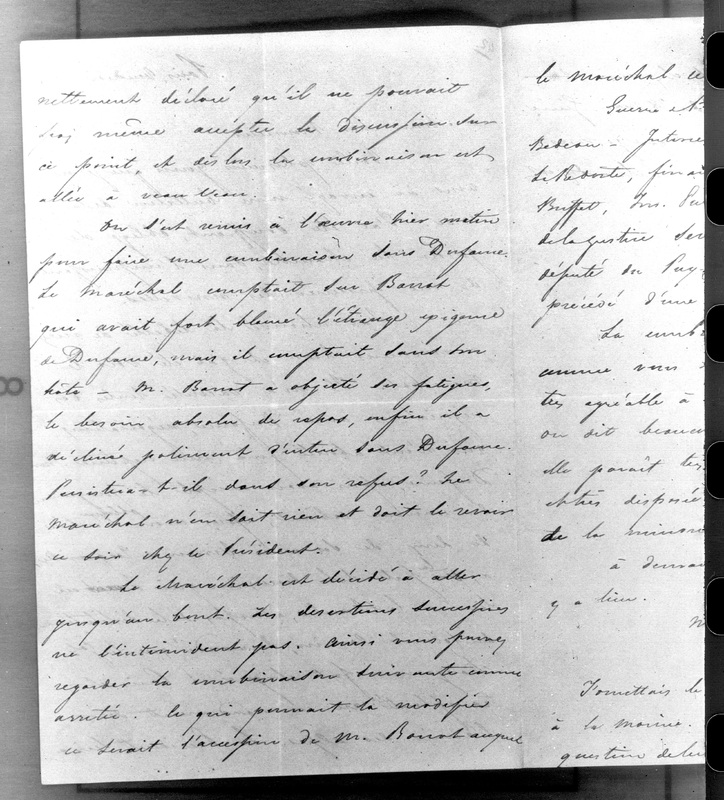 nettement déclaré qu'il ne pouvait
pas même accepter la discussion sur
ce point et dès lors la combinaison est
allée à veau l'eau.
On s'est remis à l'œuvre hier matin
pour faire une combinaison sans Dufaure.
Le Maréchal comptait sur Barrot
qui avait fort blamé l'étrange exigence
de Dufaure, mais il comptait sans son
hôte — M. Barrot a objecté ses fatigues,
le besoin absolu de repos, enfin il a
décliné poliment d'entrer sans Dufaure.
Persistera-t-il dans son refus? Le
Maréchal n'en sait rien et doit le revoir
ce soir chez le Président.
Le Maréchal est décidé à aller
jusqu'au bout. Les desertions successives
ne l'intimident pas. Ainsi vous pouvez
regarder la combinaison suivante comme
arretée. Ce qui pourrait la modifier
ce serait l'accession de M. Barrot auquel
le maréchal
Guerre
Bedeau —
La Redorte,
Buffet, Ins.
de la justice
député du Puy-
précédé d'une
La
comme vous
très agréable à
on dit
elle paraît
et très
de la
à
y a lieu.
J'omettais le
à la marine.
question de